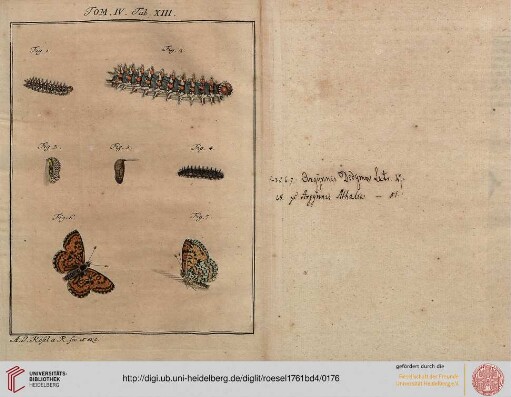 TOM. IV. Tab. XIII.
Fig. 1. Fig. 2.
Fig. 5. Fig. 3. Fig. 4.
Fig. 6. Fig. 7.
Argynnis
Argynnis Athalia
A. J. Rösel a R. fec. et exc.
UNIVERSITÄTS-
BIBLIOTHEK
HEIDELBERG
http://digi.ub.uni-heidelberg.de/diglit/roesel1761bd4/0176
gefördert durch die
Gesellschaft der Freunde
Universität Heidelberg e.V.